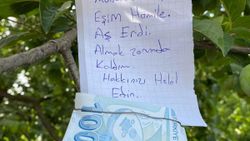 Eşim Hamile.
Aş Erdi.
Almak zorunda
Kaldım.
Hakkınızı Helal
Edin.
100